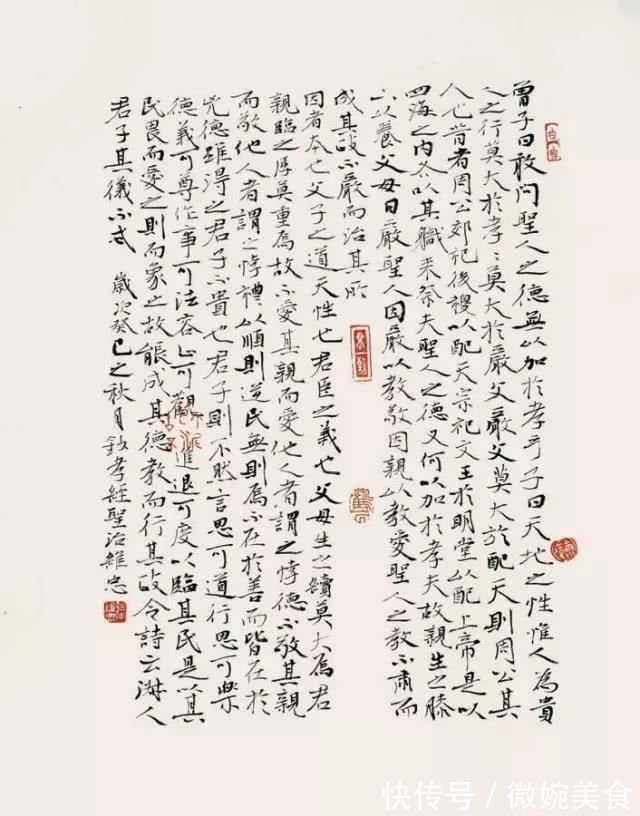 曾子曰敢問聖人之德無以加於孝乎子曰天地之性惟人為貴
人之行莫大於孝孝莫大於嚴父嚴父莫大於配天則周公其
人也昔者周公郊祀後稷以配天宗祀文王於明堂以配上帝是以
四海之內各以其職來祭夫聖人之德又何以加於孝夫故親生之膝
下以養父母日嚴聖人因嚴以教敬因親以教愛聖人之教不肅而
成其政不嚴而治其所
因者本也父子之道天性也君臣之義也父母生之續莫大焉君
親臨之厚莫重焉故不愛其親而愛他人者謂之悖德不敬其親
而敬他人者謂之悖禮以順則逆民無則焉不在於善而皆在於
兇德雖得之君子不貴也君子則不然言思可道行思可樂
德義可尊作事可法容止可觀進退可度以臨其民是以其
民畏而愛之則而象之故能成其德教而行其政令詩云淑人
君子其儀不忒 歲次癸巳之秋月錄孝經聖治維忠
快传号／微婉美食